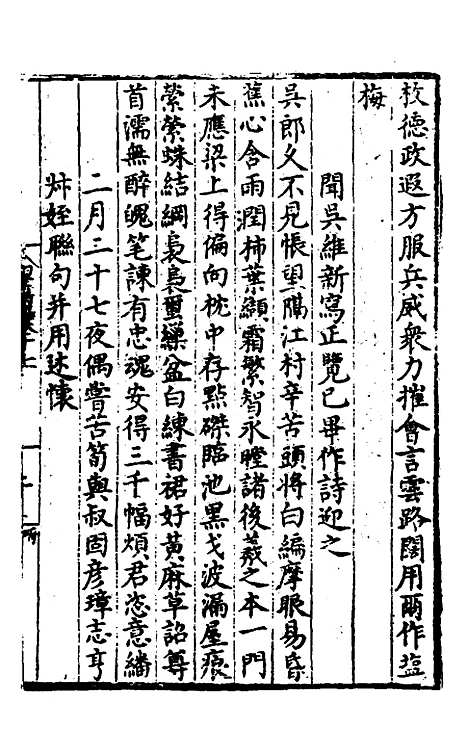 敉德政遐方服兵威衆力摧會言雲路闊用爾作塩
梅
聞吳維新寫正覽已畢作詩迎之
吳郎久不見悵望隔江村辛苦頭將白編摩眼易昏
蕉心含雨潤柿葉纈霜繁智永瞠諸後羲之本一門
未應梁上得偏向枕中存點磔臨池黑戈波漏屋痕
縈縈蛛結網裊裊璽繅盆白練書裙好黃麻草詔尊
首濡無醉魄笔諫有忠魂安得三千幅煩君恣意繙
二月三十七夜偶嘗苦筍與叔固彦璋志亨
姪聯句并用述懷